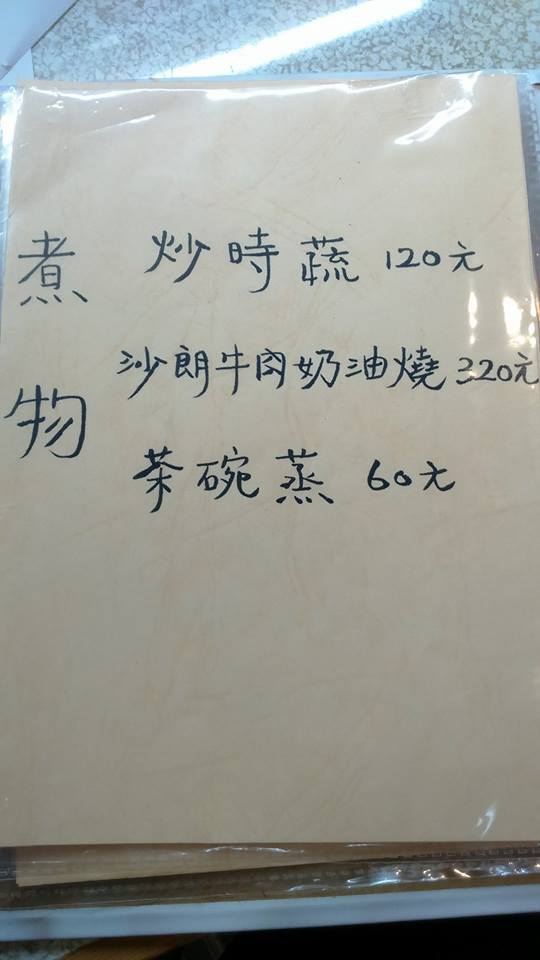 煮物
炒時蔬 120元
沙朗牛肉奶油燒 320元
茶碗蒸 60元